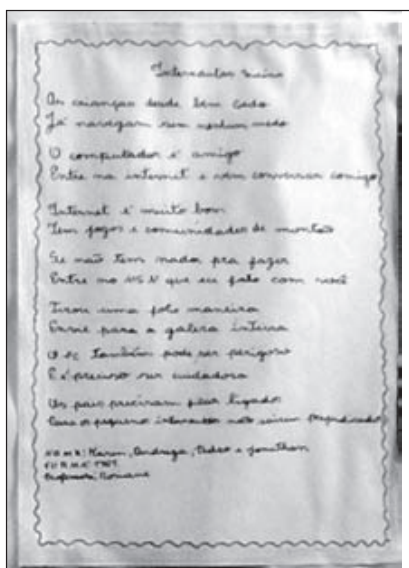 Internautas
As crianças desde bem cedo
Já navegam sem nenhum medo
O computador é amigo
Entre na internet e vem conversar comigo
Internet é muito bom
Tem jogos e comunidades de montão
Se não tem nada pra fazer
Entre no MSN que eu falo com você
Tirou uma foto maneira
Envie para a galera inteira
O PC também pode ser perigoso
E é preciso ser
Os pais precisam ficar ligado
Para os pequenos internautas não saírem prejudicados
Nome: Karen, Andreza, Pedro e Jonathan
Turma:
Professora: Rosiane